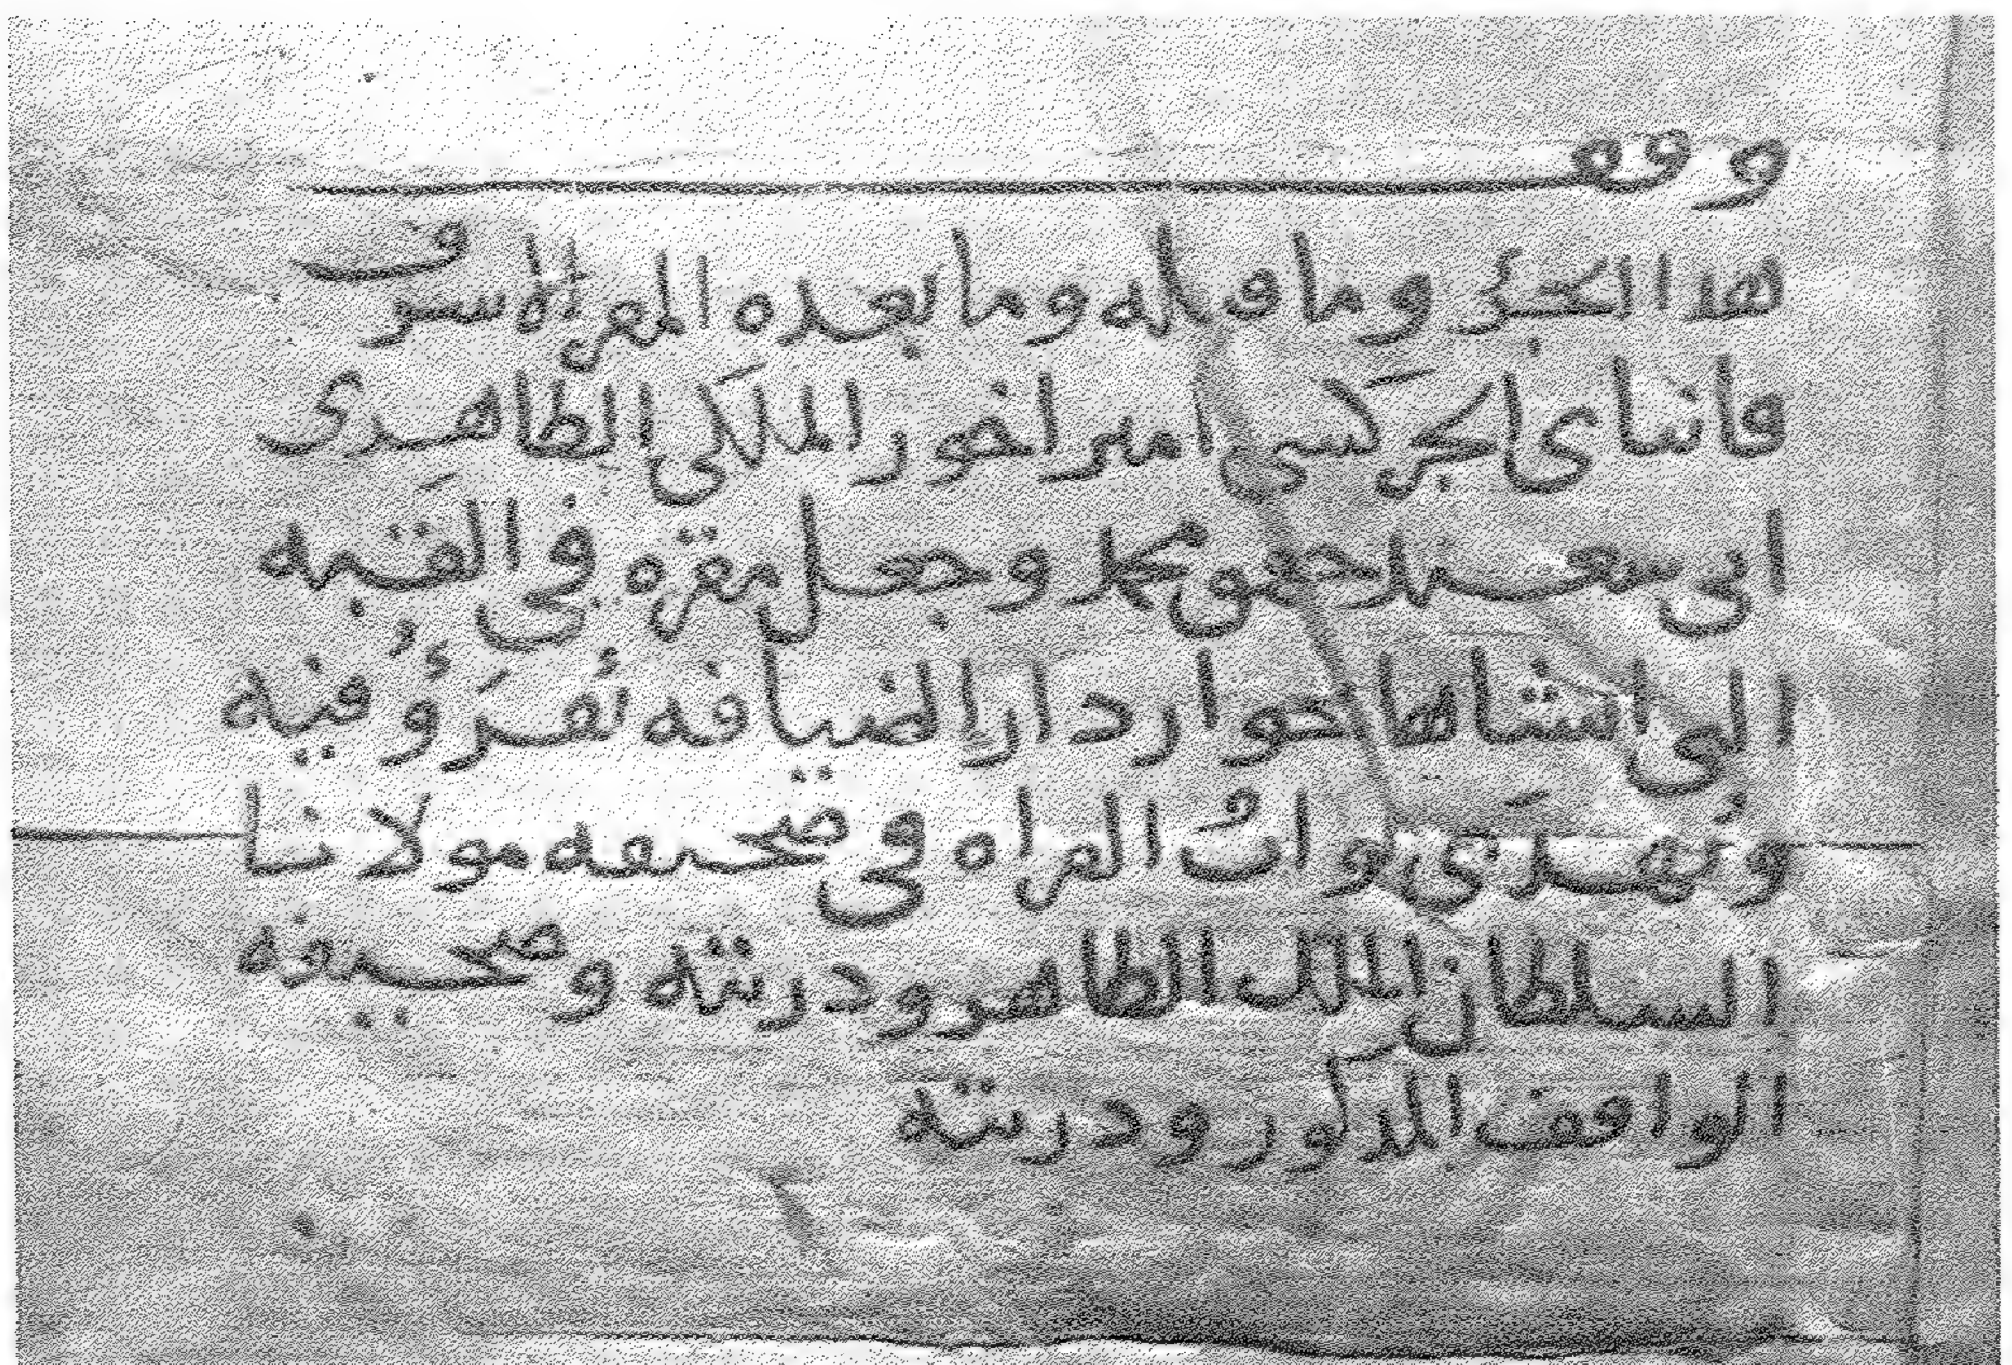 وقف
هذا الجزء وما قبله وما بعده المقر الاشرف
قانباى الجركسى امير اخور الملكى الظاهرى
ابى سعيد جقمق محمد وجعل مقره فى القبه
التى انشاها جوار دار الضيافه تُقرَؤُ فيه
ويُهدَى ثوابُ القراه فى صحيفه مولانا
السلطان الملك الظاهر وذريته وصحيفه
الواقف المذكور وذريته